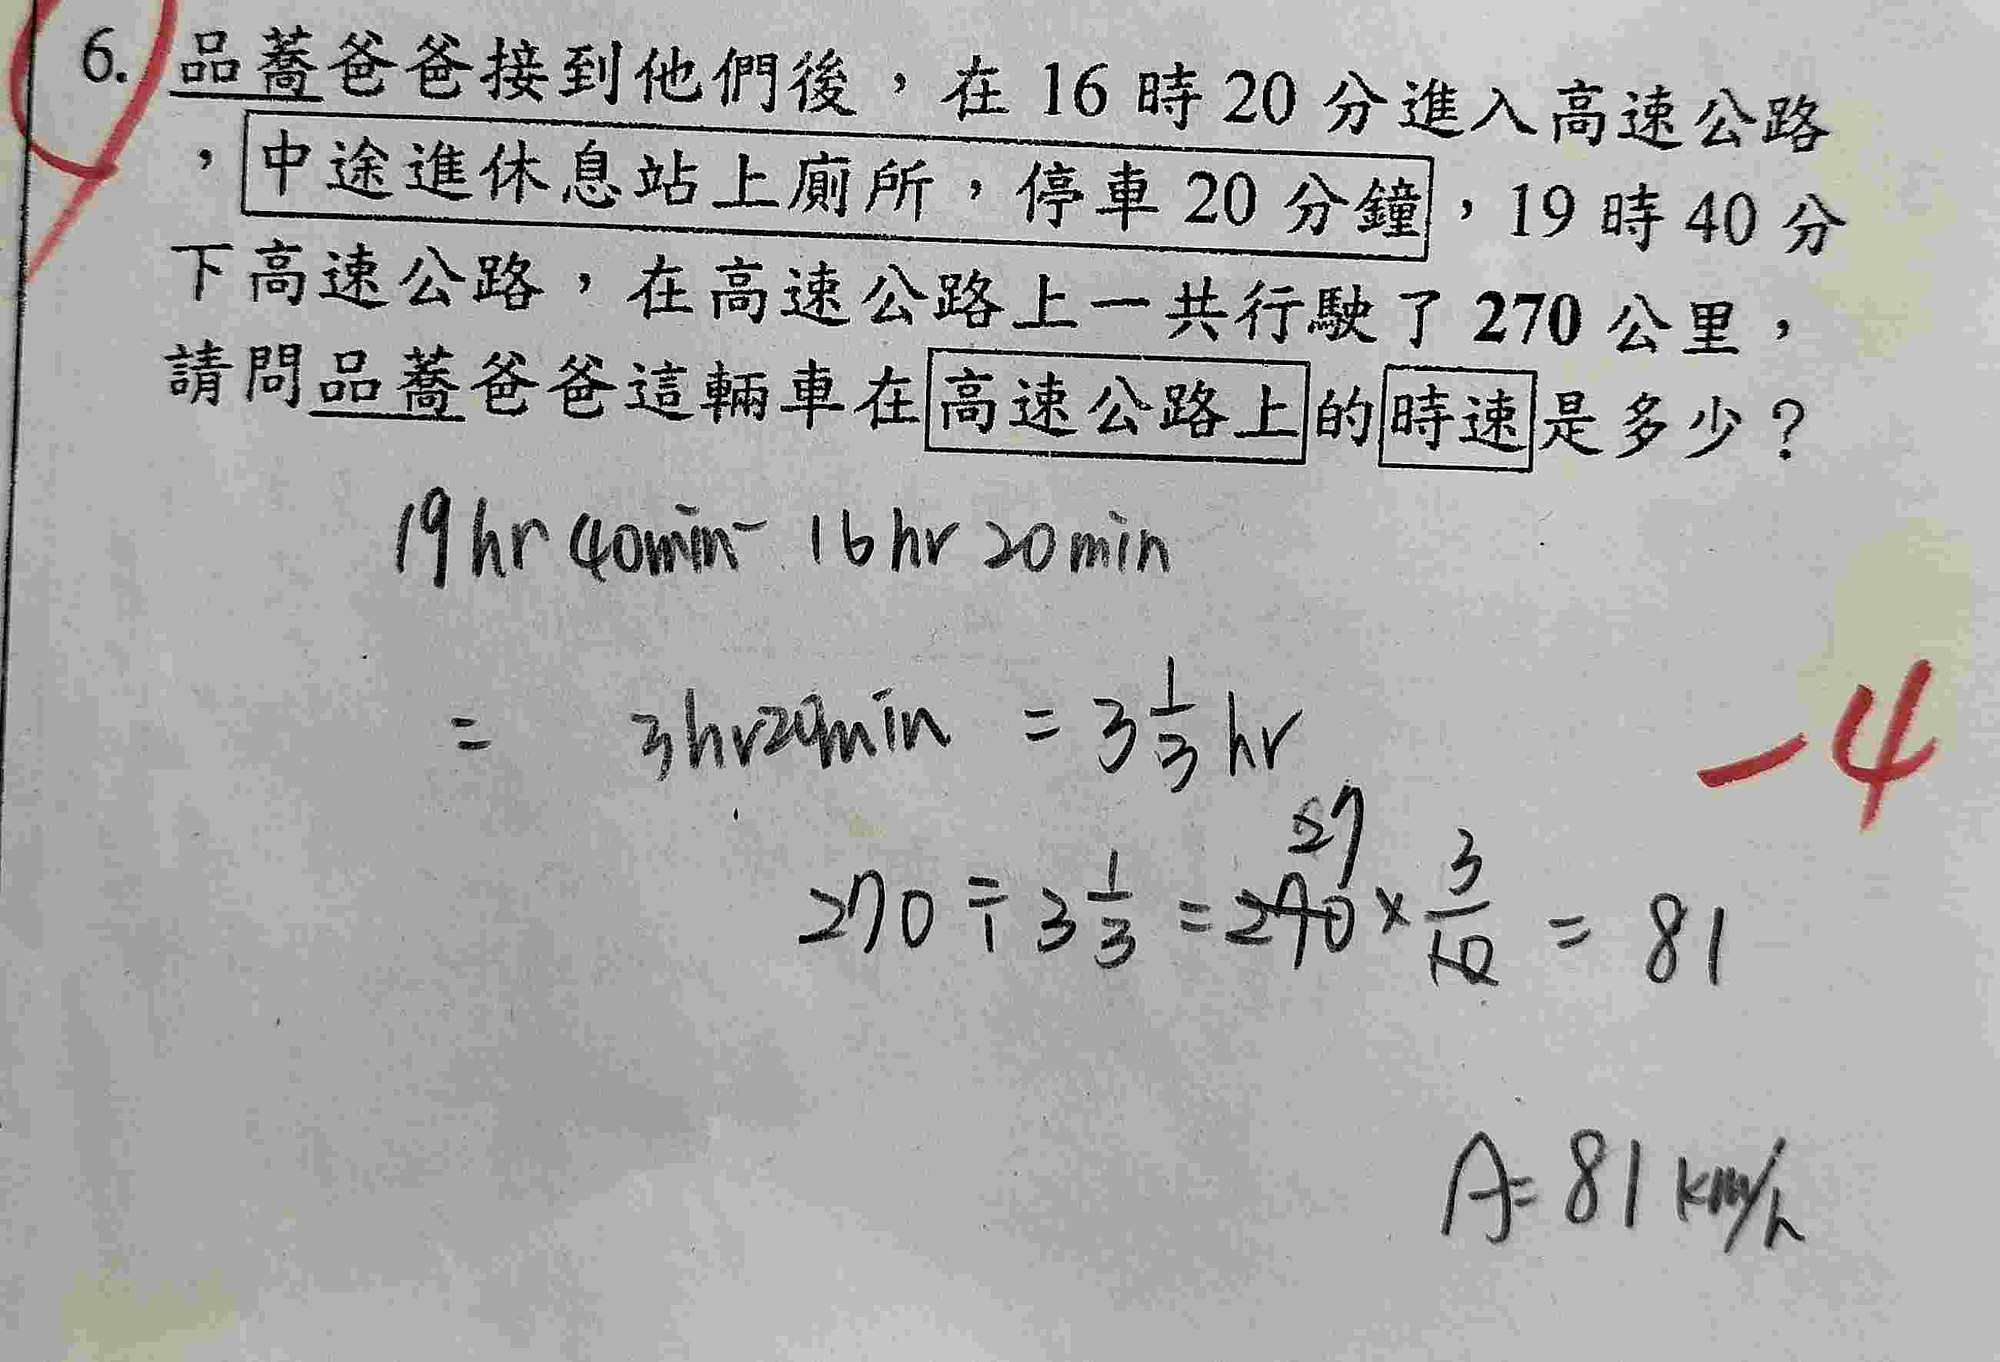 6. 品蕎爸爸接到他們後，在 16 時 20 分進入高速公路
，中途進休息站上廁所，停車 20 分鐘，19 時 40 分
下高速公路，在高速公路上一共行駛了 270 公里，
請問品蕎爸爸這輛車在高速公路上的時速是多少？
19hr 40min - 16hr 20min
= 3hr20min = 3 1/3 hr
-4
27
270 ÷ 3 1/3 = 270 × 3/10 = 81
A= 81 km/h